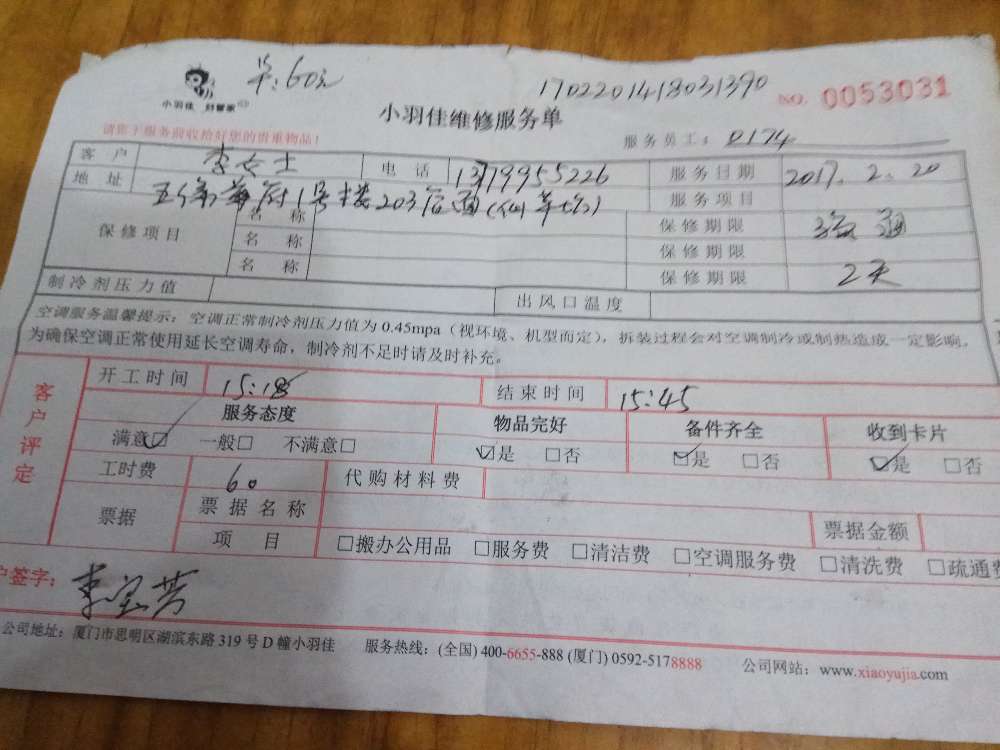 单:60元
1702201418031390
小羽佳 好管家
NO. 0053031
小羽佳维修服务单
请您于服务前收拾好您的贵重物品!
服务员工: 0174
客户 李女士 电话 13799955226 服务日期 2017.2.20
地址 1号楼203 服务项目
保修项目 名称 保修期限 疏通
名称 保修期限
名称 保修期限 2天
制冷剂压力值 出风口温度
空调服务温馨提示:空调正常制冷剂压力值为0.45mpa(视环境、机型而定),拆装过程会对空调制冷或制热造成一定影响。
为确保空调正常使用延长空调寿命,制冷剂不足时请及时补充。
客户评定
开工时间 15:18 结束时间 15:45
服务态度 物品完好 备件齐全 收到卡片
满意☑ 一般□ 不满意□ ☑是 □否 ☑是 □否 ☑是 □否
工时费 60 代购材料费
票据 票据名称 票据金额
项目 □搬办公用品 □服务费 □清洁费 □空调服务费 □清洗费 □疏通费
户签字: 李宝芳
公司地址:厦门市思明区湖滨东路319号D幢小羽佳 服务热线:(全国) 400-6655-888 (厦门) 0592-5178888 公司网站:www.xiaoyujia.com